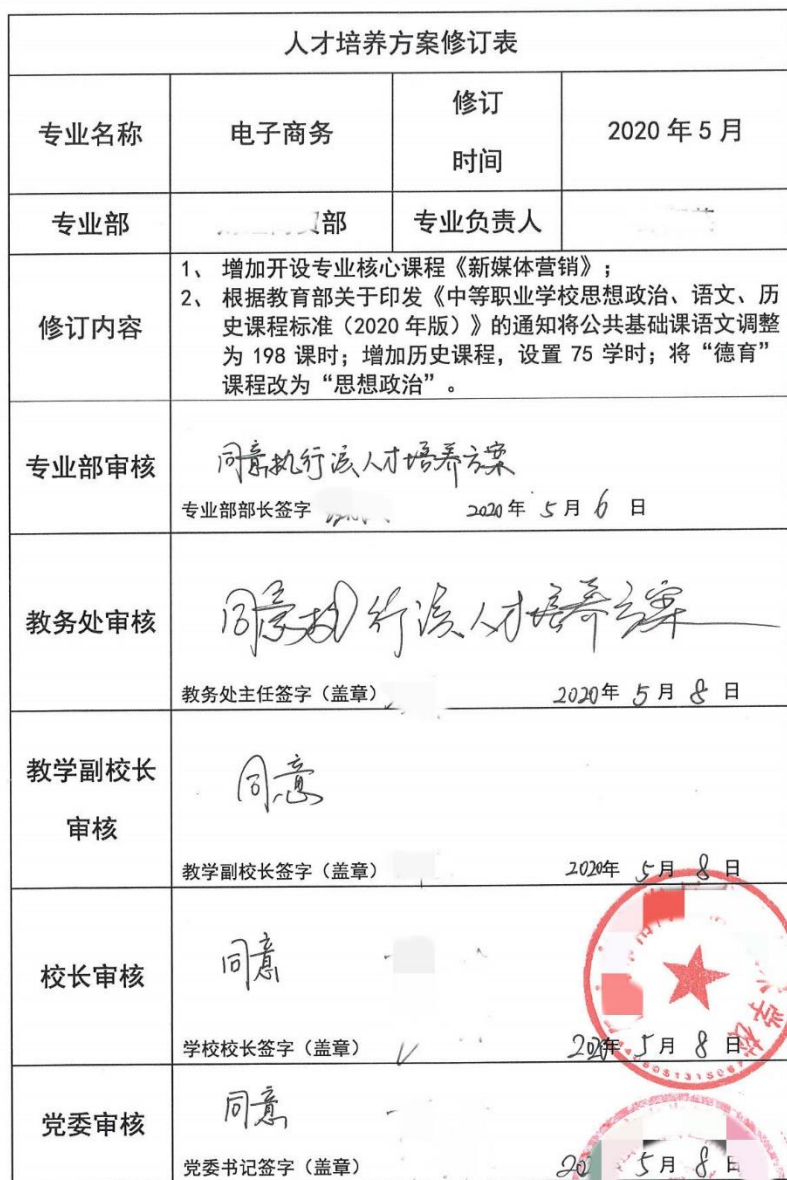 人才培养方案修订表
专业名称 电子商务 修订时间 2020年5月
专业部 部 专业负责人
修订内容
1、 增加开设专业核心课程《新媒体营销》；
2、 根据教育部关于印发《中等职业学校思想政治、语文、历
史课程标准（2020年版）》的通知将公共基础课语文调整
为 198 课时；增加历史课程，设置 75 学时；将“德育”
课程改为“思想政治”。
专业部审核
同意执行该人才培养方案
专业部部长签字 2020年 5月 6 日
教务处审核
同意执行该人才培养方案
教务处主任签字（盖章） 2020年 5月 8 日
教学副校长
审核
同意
教学副校长签字（盖章） 2020年 5月 8 日
校长审核
同意
学校校长签字（盖章） 2020年 5月 8 日
学校
党委审核
同意
党委书记签字（盖章） 20 5月 8 日